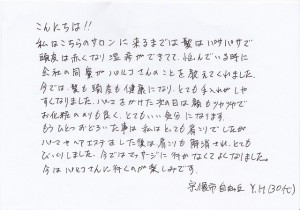 こんにちは!!
私はこちらのサロンに来るまでは髪はパサパサで
頭皮は赤くなり湿疹ができてて、悩んでいる時に
会社の同僚がハルコさんのことを教えてくれました。
今では、髪も頭皮も健康になり、とても手入れがしや
すくなりました。パーマをかけた次の日は顔もツヤツヤで
お化粧ののりも良く、とてもいい気分になります。
もうひとつおどろいた事は私はとても肩こりでしたが
パーマやヘアエステをした後は肩こりも解消されとても
びっくりしました。今ではマッサージに行かなくてよくなりました。
今はハルコさんに行くのが楽しみです。
宗像市自由ヶ丘 Y.H(30代)